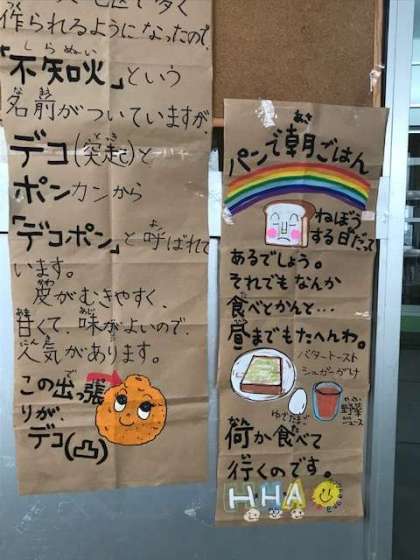 作られるようになったので、
しらぬい
「不知火」という
名前がついていますが、
デコ(突起)と
とっき
ポンカンから
「デコポン」と呼ばれて
います。
皮がむきやすく、
甘くて、味がよいので、
人気があります。
この出っ張
りが、
デコ(凸)
あさ
パンで朝ごはん
ねぼう
する日だって
あるでしょう。
それでもなんか
食べとかんと…
昼までもたへんわ。
バタートースト
シュガーがけ
ゆでたまご
野菜
ジュース
何か食べて
行くのです。
HHA